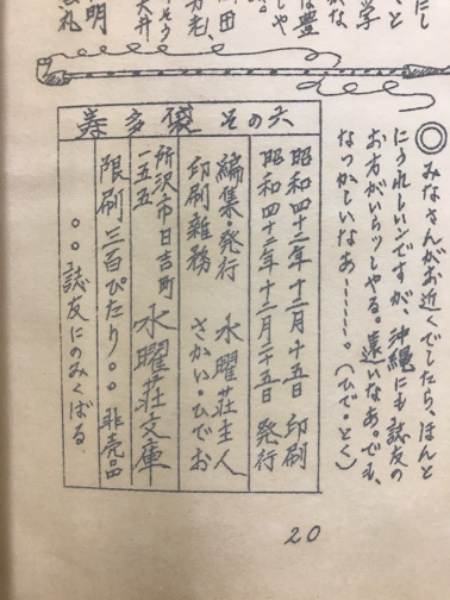 ◎みなさんがお近くでしたら、ほんと
にうれしいンですが、沖縄にも誌友の
お方がいらッしやる。遠いなあ。でも、
なつかしいなあ……。(ひで・とく)
寿多袋 その六
昭和四十二年十二月十五日 印刷
昭和四十二年十二月二十五日 発行
編集・発行 水曜荘主人
印刷雑務 さかい・ひでお
所沢市日吉町
一五五 水曜荘文庫
限刷 三百ぴたり。。非売品
。。誌友にのみくばる
20